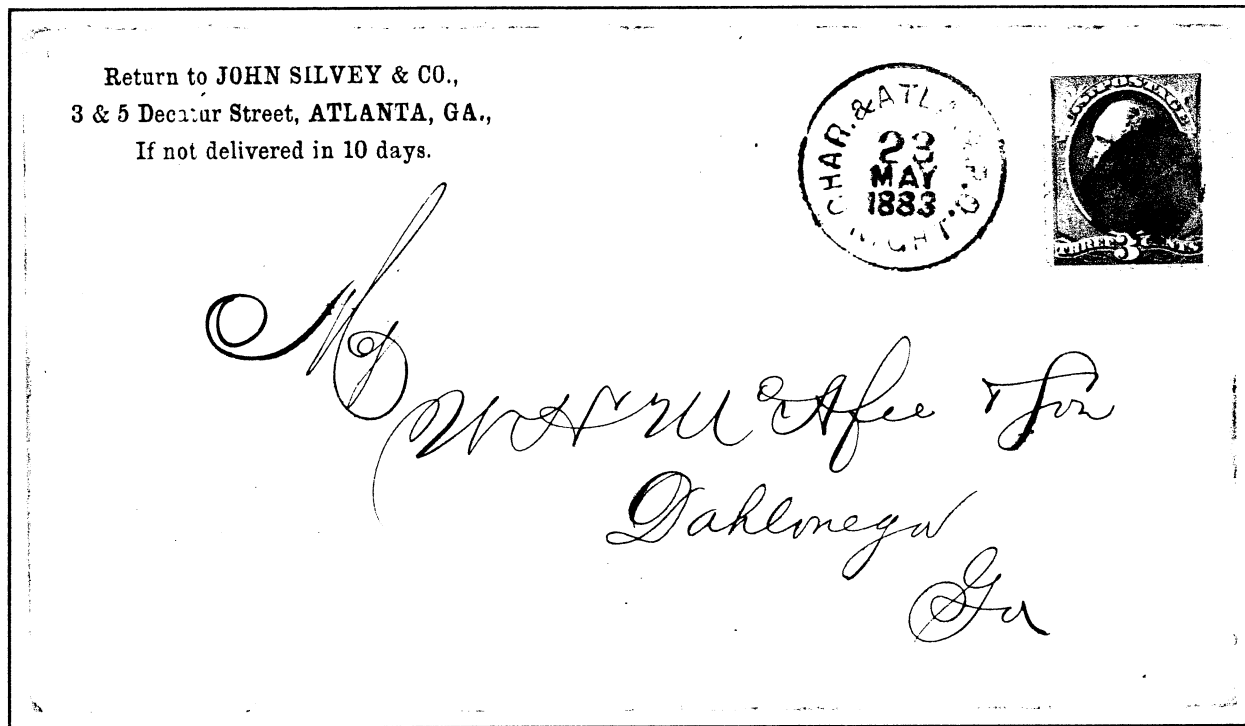 Return to JOHN SILVEY & CO.,
3 & 5 Decatur Street, ATLANTA, GA.,
If not delivered in 10 days.
CHAR. & ATL. R.P.O.
NIGHT.
23
MAY
1883
U.S. POSTAGE
THREE 3 CENTS
W H McAfee & Son
Dahlonega
Ga